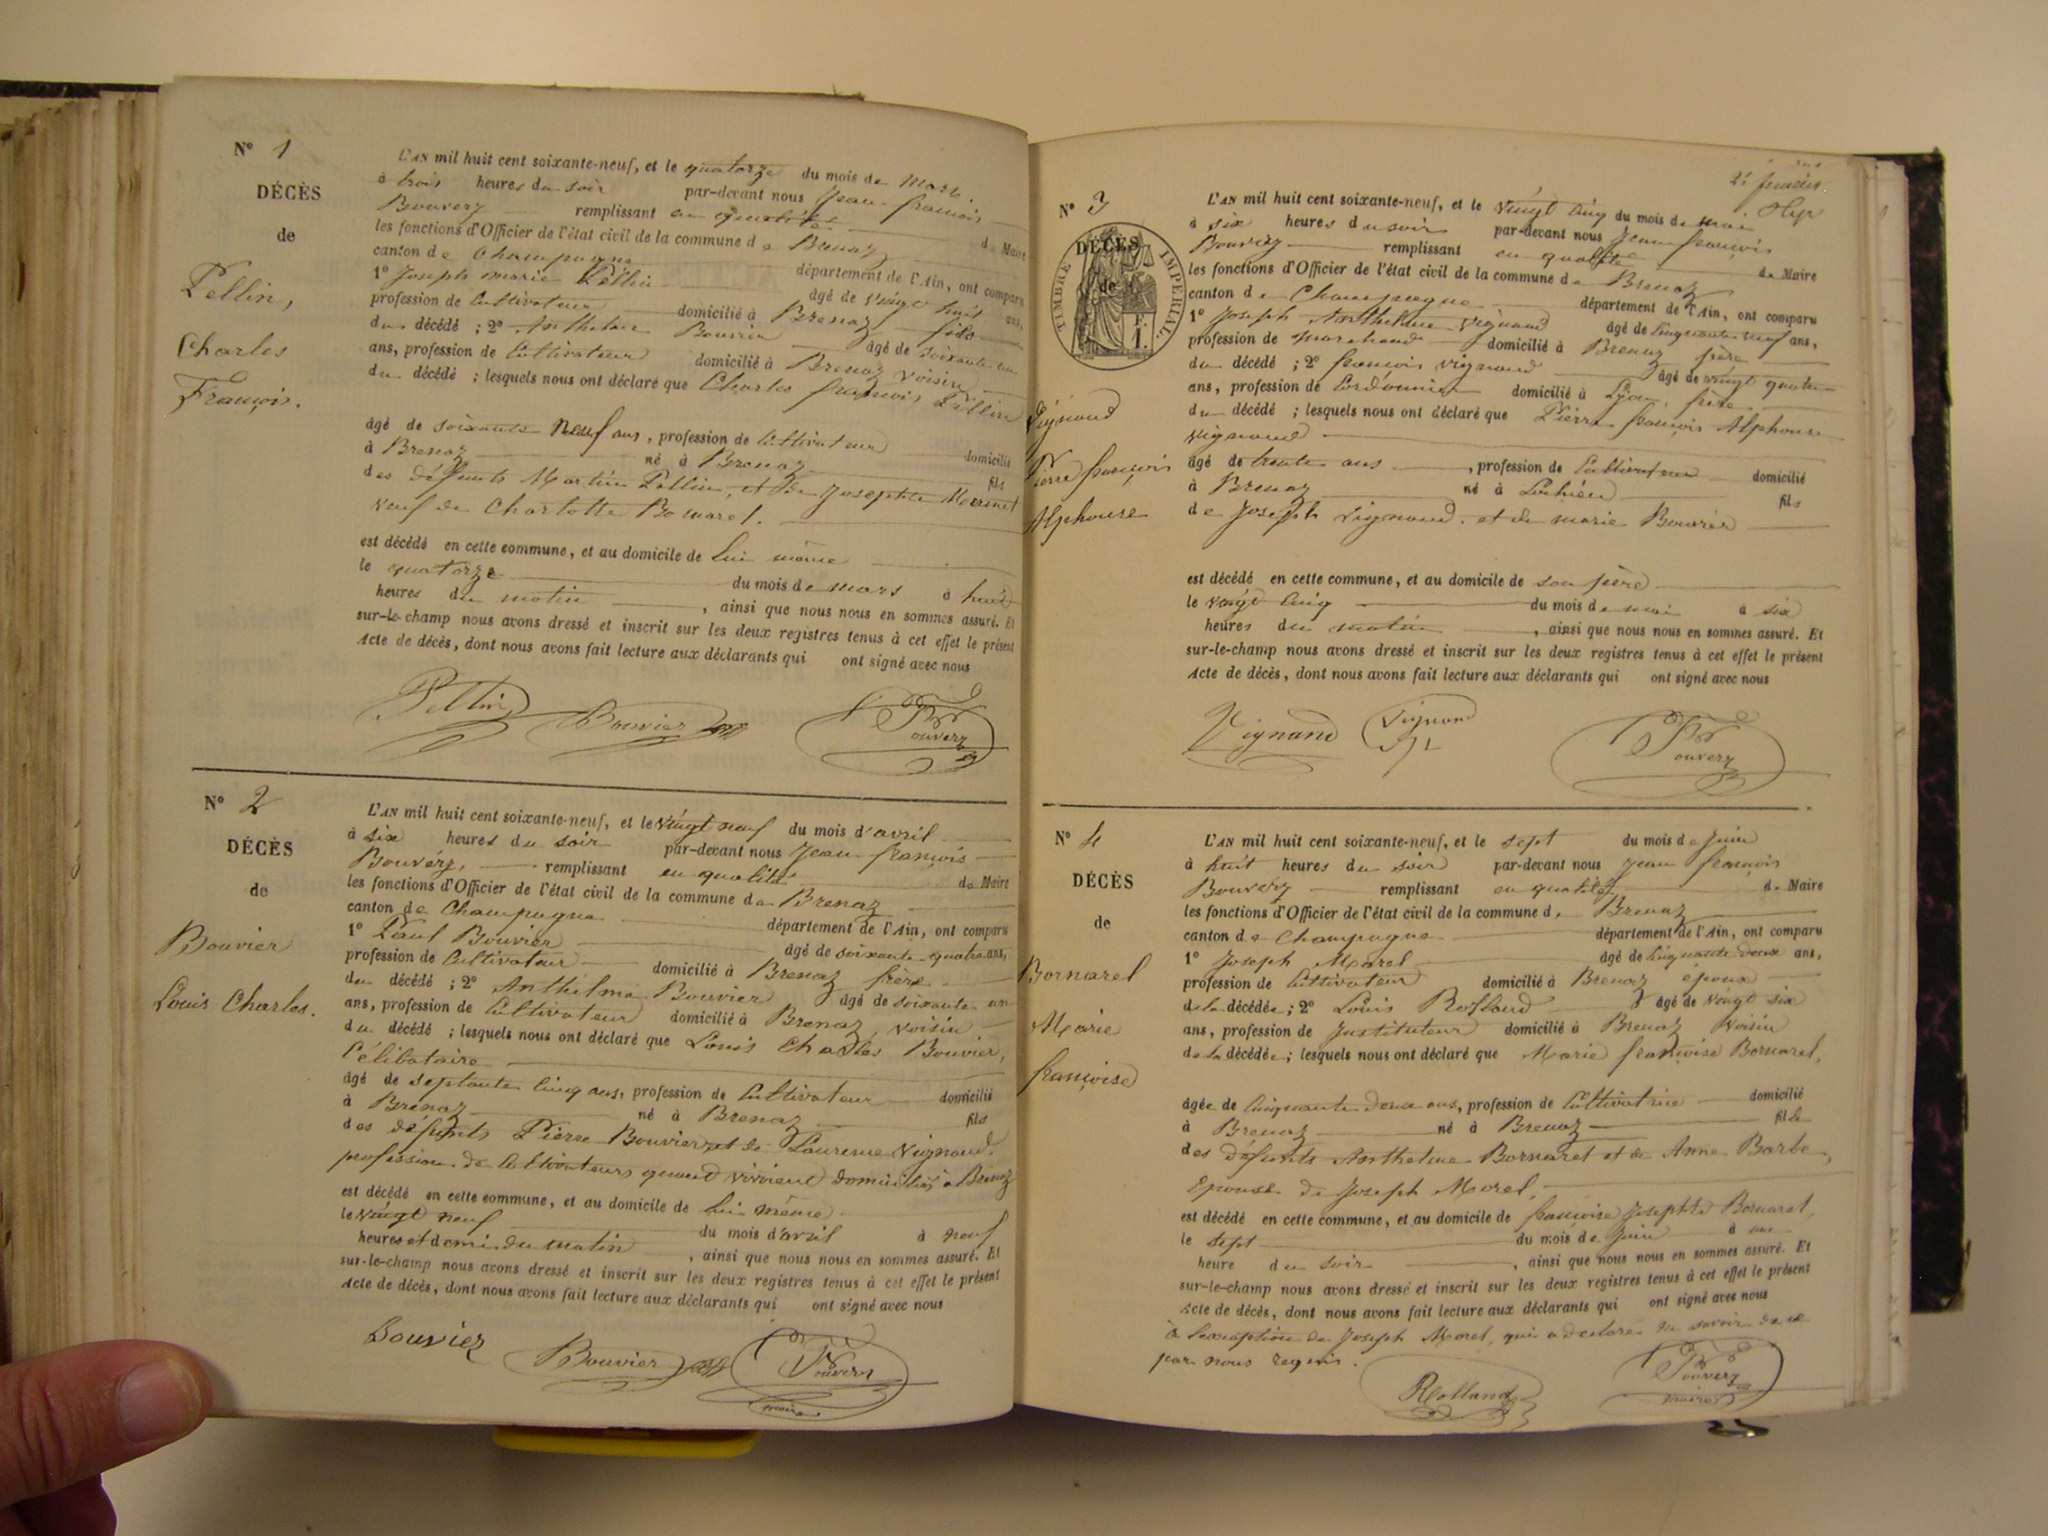 N° 1
DÉCÈS
de
Pellin,
Charles
François.
L'AN mil huit cent soixante-neuf, et le quatorze du mois de Mars
à trois heures du soir par-devant nous Jean françois
Bouvery remplissant en qualité de Maire
les fonctions d'Officier de l'état civil de la commune de Brenaz
canton de Champagne département de l'Ain, ont comparu
1° Joseph marie Pellin âgé de vingt huit ans,
profession de Cultivateur domicilié à Brenaz fils
du décédé ; 2° Anthelme Bouvier âgé de soixante un
ans, profession de Cultivateur domicilié à Brenaz voisin
du décédé ; lesquels nous ont déclaré que Charles françois Pellin
âgé de soixante Neuf ans, profession de Cultivateur domicilié
à Brenaz né à Brenaz fils
des défunts Martin Pellin, et de Josephte Mermet
veuf de Charlotte Bornarel.
est décédé en cette commune, et au domicile de lui même
le quatorze du mois de mars à huit
heures du matin, ainsi que nous nous en sommes assuré. Et
sur-le-champ nous avons dressé et inscrit sur les deux registres tenus à cet effet le présent
Acte de décès, dont nous avons fait lecture aux déclarants qui ont signé avec nous
Pellin Bouvier Bouvery
N° 2
DÉCÈS
de
Bouvier
Louis Charles.
L'AN mil huit cent soixante-neuf, et le vingt neuf du mois d'avril
à six heures du soir par-devant nous Jean françois
Bouvery, remplissant en qualité de Maire
les fonctions d'Officier de l'état civil de la commune de Brenaz
canton de Champagne département de l'Ain, ont comparu
1° Paul Bouvier âgé de soixante quatre ans,
profession de Cultivateur domicilié à Brenaz frère
du décédé ; 2° Anthelme Bouvier âgé de soixante un
ans, profession de Cultivateur domicilié à Brenaz, voisin
du décédé ; lesquels nous ont déclaré que Louis Charles Bouvier,
Célibataire
âgé de septante cinq ans, profession de Cultivateur domicilié
à Brenaz né à Brenaz fils
des défunts Pierre Bouvier et de Laurence Vignand.
profession de Cultivateurs quand vivoient domiciliés a Brenaz
est décédé en cette commune, et au domicile de lui même
le vingt neuf du mois d'avril à neuf
heures et demie du matin, ainsi que nous nous en sommes assuré. Et
sur-le-champ nous avons dressé et inscrit sur les deux registres tenus à cet effet le présent
Acte de décès, dont nous avons fait lecture aux déclarants qui ont signé avec nous
Bouvier Bouvier Bouvery
maire
N° 3
DÉCÈS
de
TIMBRE IMPÉRIAL
Vignand
Pierre françois
Alphonse
L'AN mil huit cent soixante-neuf, et le vingt cinq du mois de mai
à six heures du soir par-devant nous Jean françois
Bouvery remplissant en qualité de Maire
les fonctions d'Officier de l'état civil de la commune de Brenaz
canton de Champagne département de l'Ain, ont comparu
1° Joseph Anthelme Vignand âgé de Cinquante neuf ans,
profession de marchand domicilié à Brenaz père
du décédé ; 2° françois Vignand âgé de vingt quatre
ans, profession de Cordonnier domicilié à Lyon, frère
du décédé ; lesquels nous ont déclaré que Pierre françois Alphonse
Vignand
âgé de trente ans, profession de Cultivateur domicilié
à Brenaz né à Lochieu fils
de Joseph Vignand et de marie Bouvier
est décédé en cette commune, et au domicile de son père
le vingt cinq du mois de mai à six
heures du matin, ainsi que nous nous en sommes assuré. Et
sur-le-champ nous avons dressé et inscrit sur les deux registres tenus à cet effet le présent
Acte de décès, dont nous avons fait lecture aux déclarants qui ont signé avec nous
Vignand Vignand Bouvery
N° 4
DÉCÈS
de
Bornarel
Marie
françoise
L'AN mil huit cent soixante-neuf, et le sept du mois de Juin
à huit heures du soir par-devant nous Jean françois
Bouvery remplissant en qualité de Maire
les fonctions d'Officier de l'état civil de la commune de Brenaz
canton de Champagne département de l'Ain, ont comparu
1° Joseph Morel âgé de Cinquante deux ans,
profession de Cultivateur domicilié à Brenaz epoux
de la décédée ; 2° Louis Rolland âgé de vingt six
ans, profession de Instituteur domicilié à Brenaz Voisin
de la décédée ; lesquels nous ont déclaré que Marie françoise Bornarel,
âgée de Cinquante deux ans, profession de Cultivatrice domicilié
à Brenaz né à Brenaz fille
des défunts Anthelme Bornarel et de Anne Barbe,
Epouse de Joseph Morel,
est décédé en cette commune, et au domicile de françoise Josephte Bornarel,
le sept du mois de Juin à une
heure du soir, ainsi que nous nous en sommes assuré. Et
sur-le-champ nous avons dressé et inscrit sur les deux registres tenus à cet effet le présent
Acte de décès, dont nous avons fait lecture aux déclarants qui ont signé avec nous
à l'exception de Joseph Morel, qui a déclaré ne savoir de ce
par nous requis.
Rolland Bouvery
maire